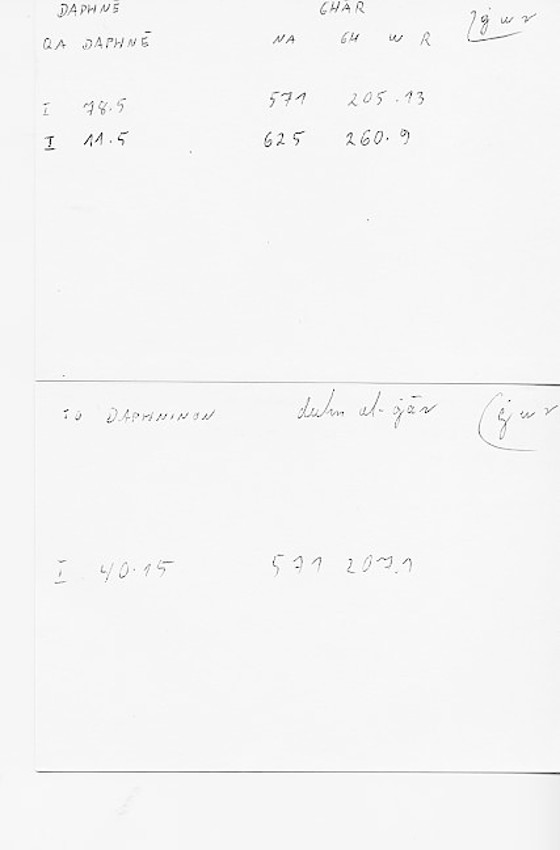 DAPHNĒ GHĀR
QA DAPHNĒ NA GH W R (ġ w r
I 78.5 571 205.13
I 11.5 625 260.9
TO DAPHNINON duhn al-ġār (ġ w r
I 40.15 571 207.1